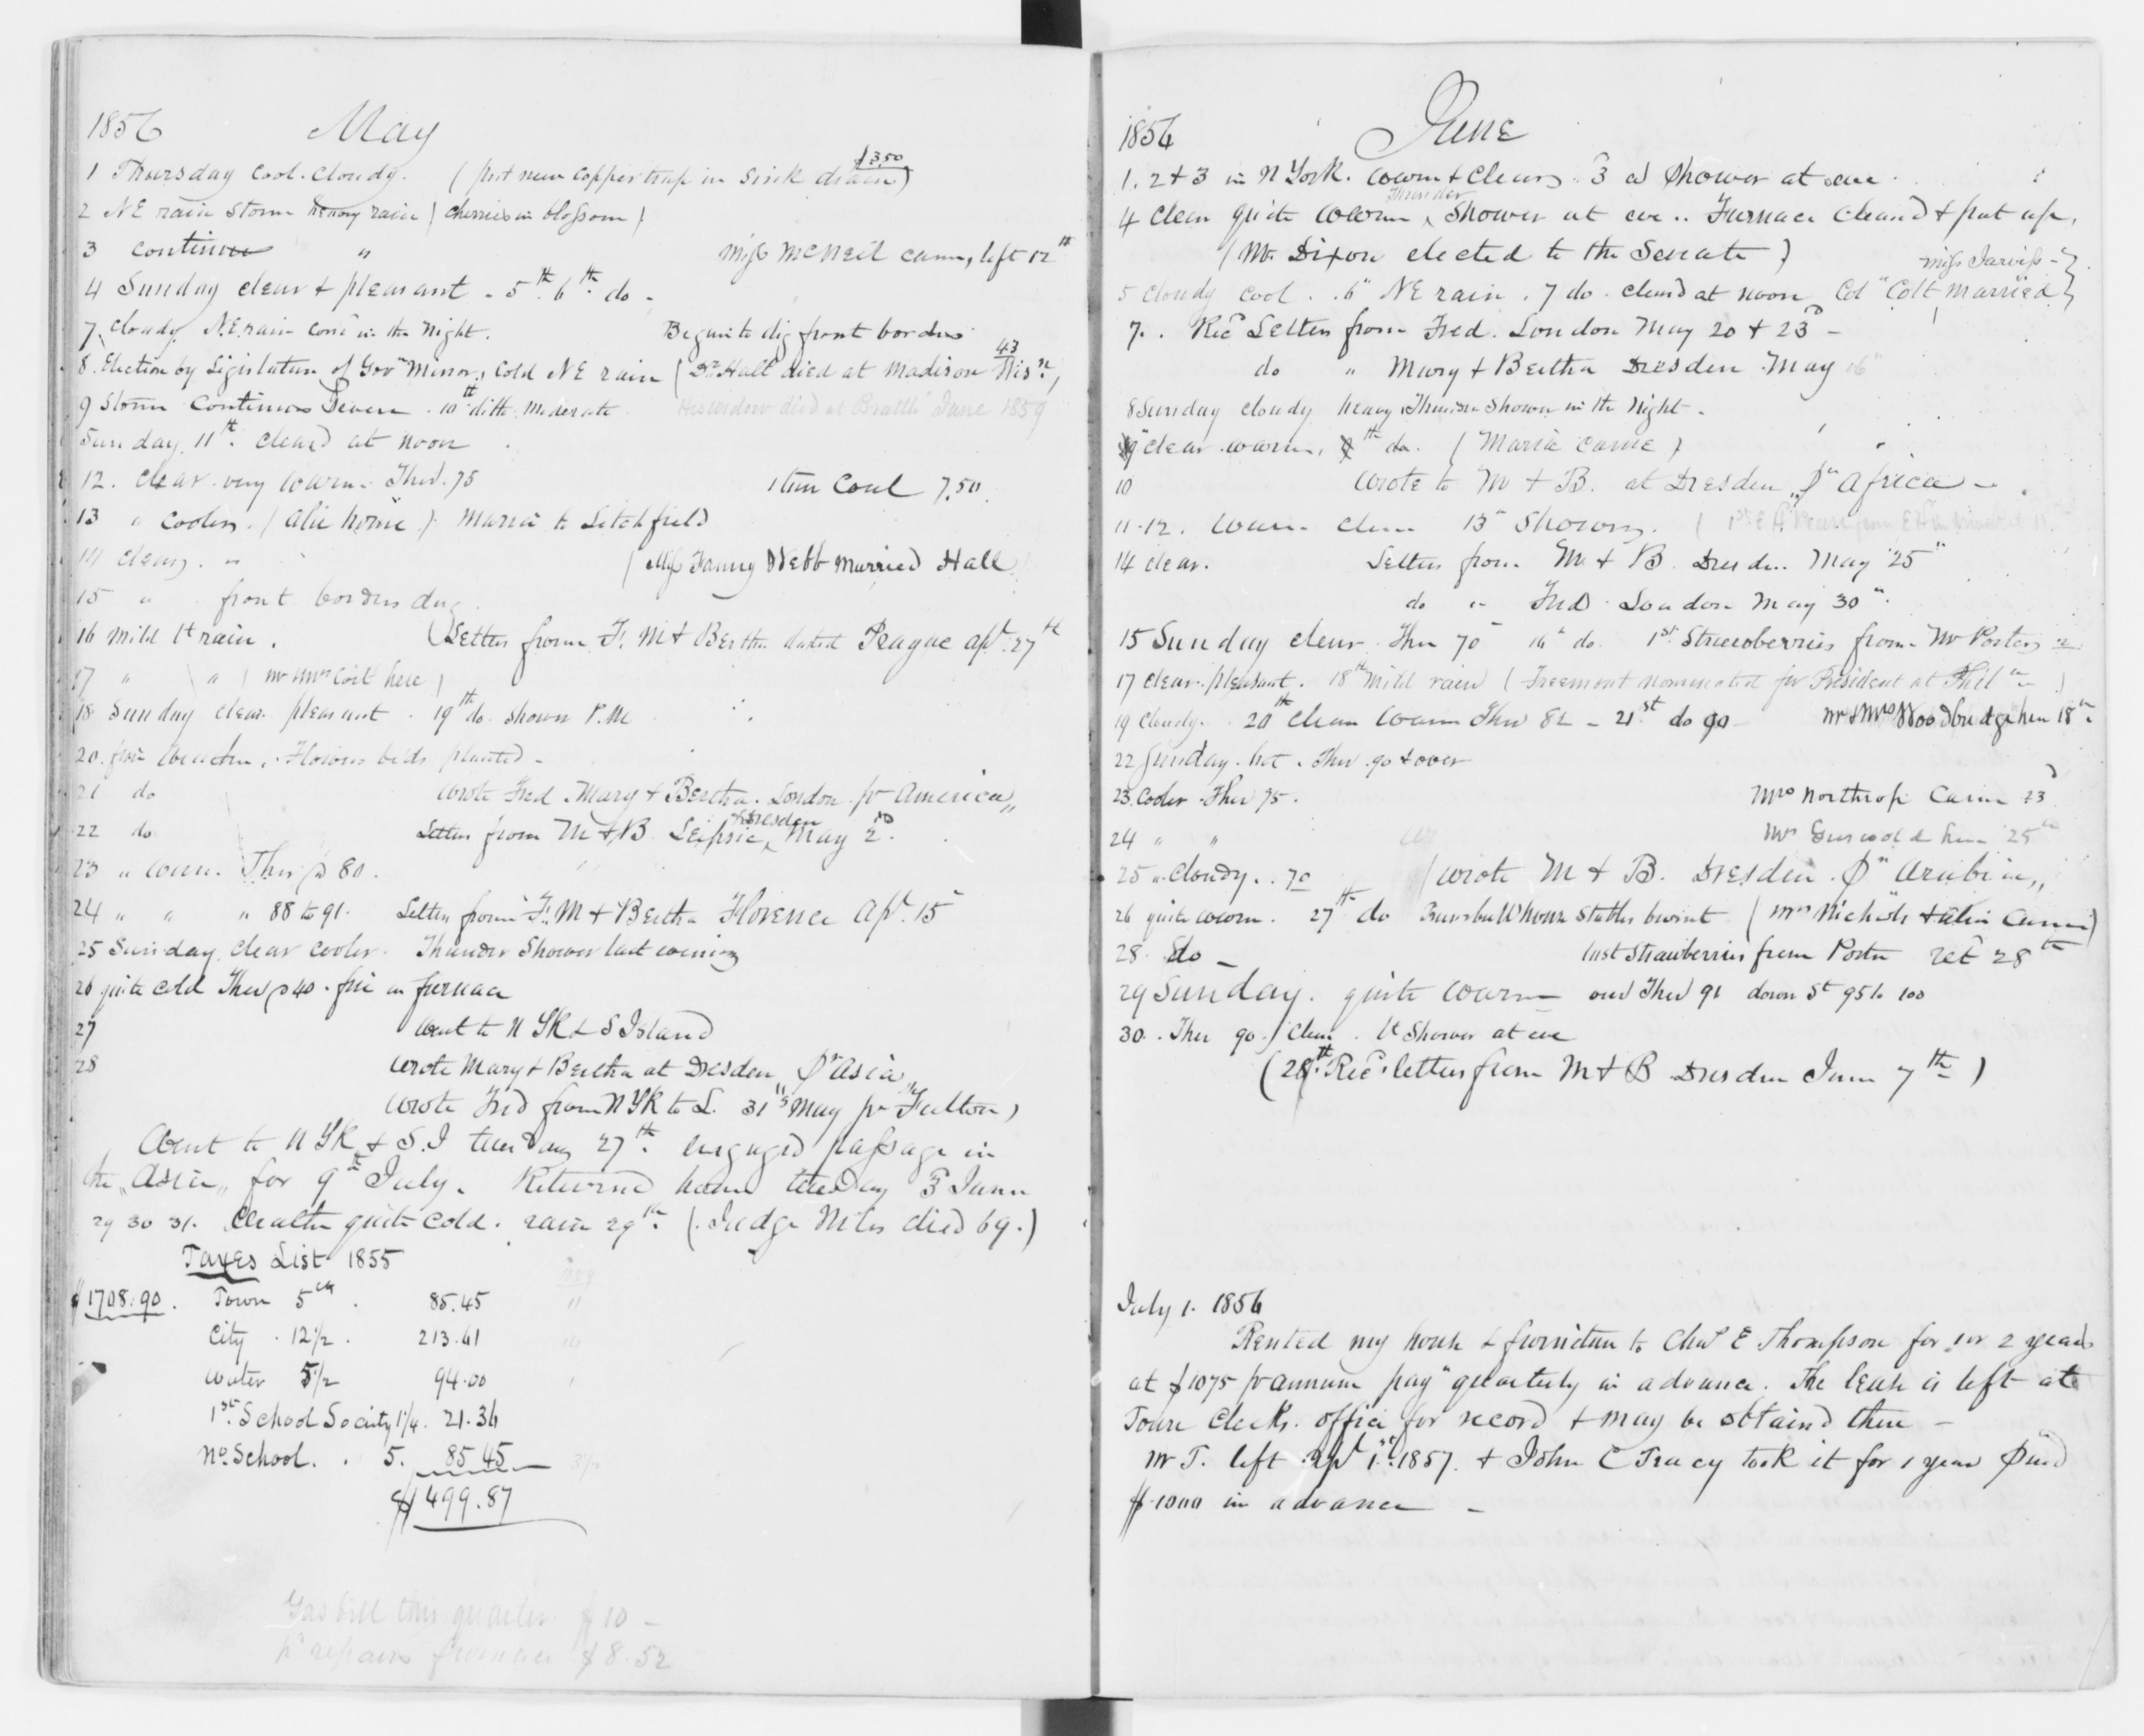 1856 May
1 Thursday cool. cloudy. ( put new copper trap in sink drain ) $3.50
2 NE rain storm heavy rain ( cherries in blossom )
3 continues " Miss McNeil came, left 12th
4 Sunday clear & pleasant - 5th. 6th. do -
7 Cloudy. N.E. rain comc in the night. Begun to dig front borders
8. Election by Legislature of Govr Minor, Cold NE rain ( Dr. Hall died at Madison Wisn, 43
9 Storm continues severe. 10th ditto moderate his widow died at Brattlo June 1859
Sunday 11th. Cleard at noon
12. Clear very warm Ther. 75 1 ton Coal 7.50.
13 " cooler. ( Alie home ) Maria to Litchfield
14 clear. " ( Miss Fanny Webb married Hall
15 " front borders dug
16 Mild lt rain. ( Letters from F. M & Bertha dated Prague Apl. 27th
17 " " ( Mr Mrs Coit here )
18 Sunday clear pleasant. 19th do. shower P.M.
20. fine weather. Flower beds planted -
21 do Wrote Fred. Mary & Bertha. London pr America"
22 do Letters from M & B Leipsic, & Dresden May 2d.
23 " warm. Ther 80.
24 " " " 88 to 91. Letters from F. M & Bertha Florence Apl. 15
25 Sunday. clear cooler. Thunder Shower last evening
26 quite cold Ther 40. fire in furnace
27 Went to N YK & S Island
28 Wrote Mary & Bertha at Dresden, pr "Asia"
Wrote Fred from N YK to L. 31st May pr "Fulton"
Went to N YK & S.I tuesday 27th. engaged passage in
the "Asia" for 9th July. Returned home tuesday 3d June
29 30 31. Weather quite cold. rain 29th. ( Judge Niles died 69. )
Taxes List 1855
$1708.90. Town 5 cts. 85.45
City . 12 1/2 . 213.61
Water 5 1/2 94.00
1st. School Society 1 1/4. 21.36
No. School. . 5. 85 45
$499.87
Gas bill this quarter $10 -
pd repairs furnace $8.52
1856 June
1. 2 & 3 in N York. warm & clear. 3d Shower at eve.
4 Clear quite warm, Thunder Shower at eve.. Furnace cleand & put up.
( Mr. Dixon elected to the Senate )
5 cloudy cool. . 6" NE rain. 7 do. cleard at noon Col "Colt married Miss Jarvis - }
7. . Recd Letters from Fred. London May 20 & 23d -
do " Mary & Bertha Dresden May 16"
8 Sunday cloudy heavy Thunder Shower in the night.
9" clear warm, th do. ( Maria came )
10 Wrote to M & B. at Dresden, pr "Africa" -
11-12. Warm clear 13" Showers.
14 clear. Letters from M & B Dresden May 25"
do " Fred London May 30".
15 Sunday clear Ther 70 16" do. 1st Strawberries from Mr Porters
17 clear. pleasant. 18th Mild rain ( Freemont nominated for President at Phila )
19 Cloudy. 20th clear warm Ther 82 - 21st do 90 Mr & Mrs Woodbridge here 18th.
22 Sunday. hot. Ther. 90 & over
23. Cooler. Ther 75. Mrs Northrop came 23d
24 " " Mrs Griswold here 25th
25 ". Cloudy. . 70 ( Wrote M & B. Dresden. pr "Arabia"
26 quite warm. 27th do stables burnt ( Mrs Nichols & Alie came )
28. do - last strawberries from Porter 28th
29 Sunday. quite warm our Ther 91 down St 95 to 100
30. Ther 90. Clear. lt Shower at eve
( 28th. Recd. letters from M & B Dresden June 7th )
July 1. 1856
Rented my house & furniture to Chas E Thompson for 1 or 2 years
at $1075 pr annum pay" quarterly in advance. The lease is left at
Town Clerks. office for record & may be obtaind there -
Mr T. left Apl 1st. 1857. & John C Tracy took it for 1 year paid
$1000 in advance -